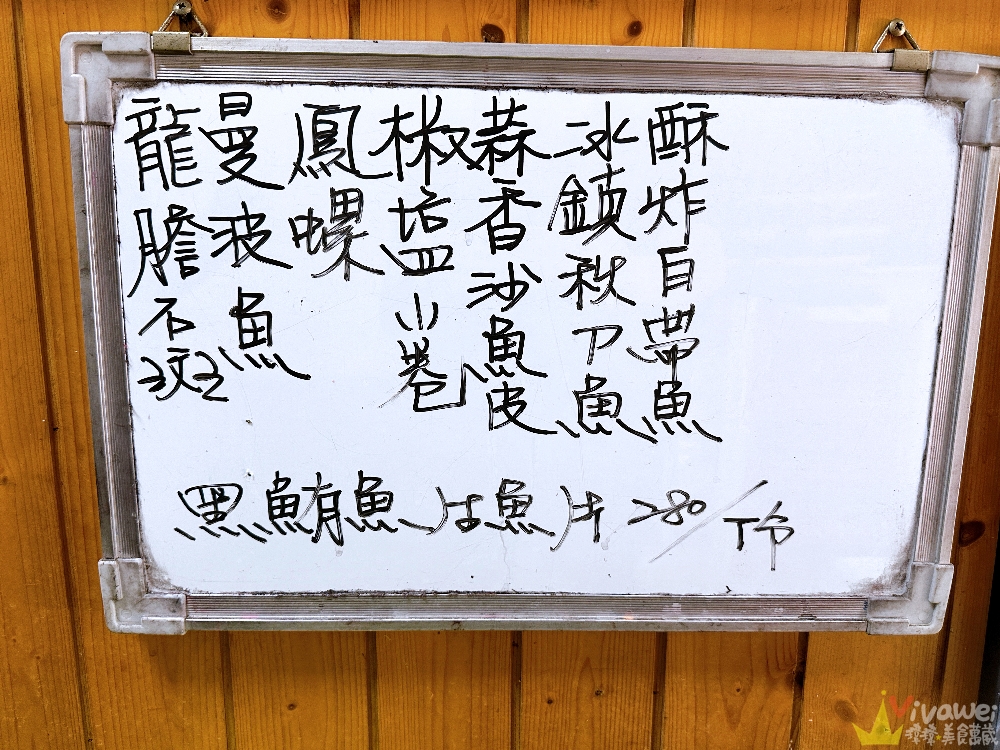 龍膽石斑
曼波魚
鳳螺
椒塩小卷
蒜香沙魚皮
冰鎮秋刀魚
酥炸白帶魚
黑鮪魚生魚片 280/份
Vivawei
美食萬歲